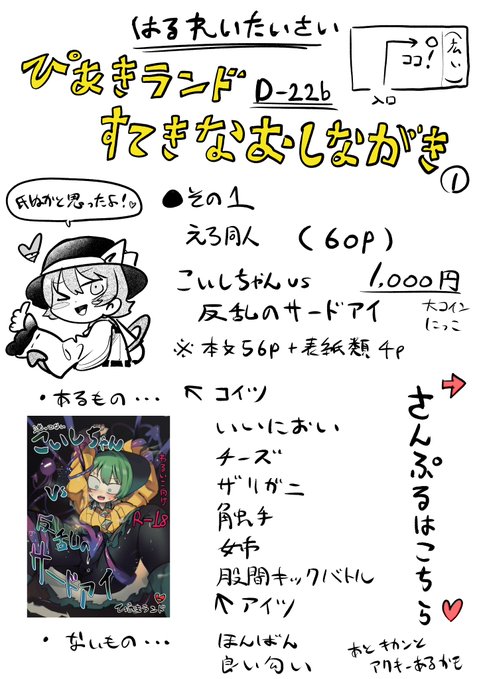 はる丸いたいさい
ココ!
(広い)
入口
ぴあきランド
D-22b
すてきなおしながき
①
氏ぬかと思ったよ!♡
●その1
えろ同人 (60P)
こいしちゃんvs
反乱のサードアイ
1,000円
大コイン
にっこ
※本文56P+表紙類4P
・あるもの・・・
↖コイツ
いいにおい
チーズ
ザリガニ
触手
姉
股間キックバトル
↖アイツ
さんぷるはこちら
こいしちゃん
VS
反乱の
サードアイ
R-18
ぴあきランド
・ないもの・・・
ほんばん
良い匂い
あと キカンと
アクキーあるかも